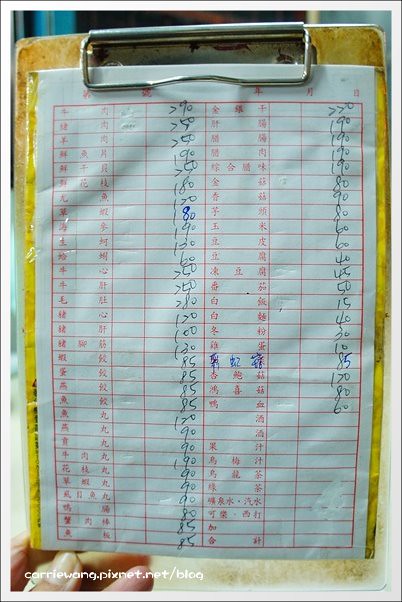 第 號 年 月 日
牛肉 290 金錢干 220
豬肉 250 肝腸 190
羊肉 250 腊腸 190
鮮魚片 190 腊肉 190
鮮干貝 250 綜合腊味 190
鮮花枝 180 金菇 80
魚 170 香菇 80
草蝦 180 芋頭 80
海參 190 玉米 60
生蚵 130 豆皮 60
蛤蜊 60 豆腐 40
牛心 250 凍豆腐 45
牛肝 250 番茄 50
毛肚 280 白飯 15
豬心 130 白麵 40
豬肝 100 冬粉 30
豬腳筋 130 雞蛋 10
蝦餃 85 85
蛋餃 85 杏鮑菇 170
燕餃 85 鴻喜菇 80
魚餃 85 鴨血 60
魚丸 170 酒
燕丸 90 酒
貢丸 90 果汁
牛肉丸 190 烏梅汁
花枝丸 90 烏龍茶
草蝦丸 90 綠茶
虱目魚丸 90 礦泉水·汽水
鴨腸 80 可樂·西打
蟹肉棒 85 加
魚板 85 合計
carriewang.pixnet.net/blog